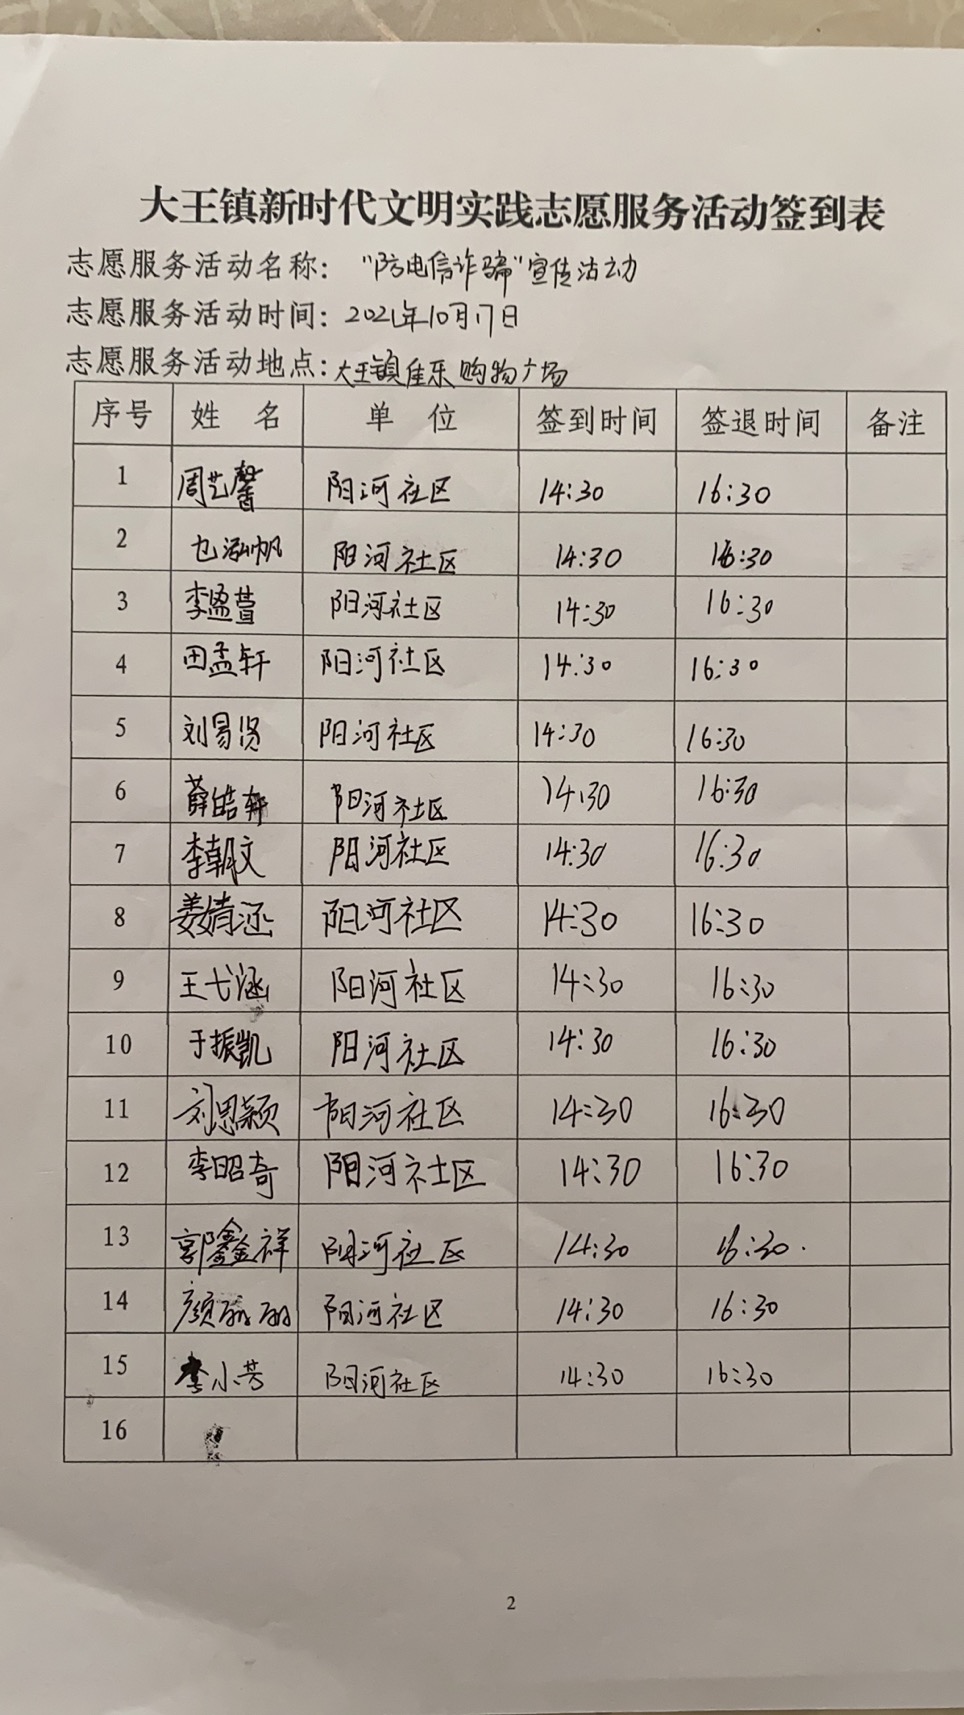 大王镇新时代文明实践志愿服务活动签到表
志愿服务活动名称："防电信诈骗"宣传活动
志愿服务活动时间：2021年10月17日
志愿服务活动地点：大王镇佳乐购物广场
序号 姓名 单位 签到时间 签退时间 备注
1 周艺馨 阳河社区 14:30 16:30
2 也泓帆 阳河社区 14:30 16:30
3 李盈萱 阳河社区 14:30 16:30
4 田孟轩 阳河社区 14:30 16:30
5 刘易贤 阳河社区 14:30 16:30
6 薛皓轩 阳河社区 14:30 16:30
7 李朝文 阳河社区 14:30 16:30
8 姜婧涵 阳河社区 14:30 16:30
9 王弋涵 阳河社区 14:30 16:30
10 于振凯 阳河社区 14:30 16:30
11 刘思颖 阳河社区 14:30 16:30
12 李昭奇 阳河社区 14:30 16:30
13 郭鑫祥 阳河社区 14:30 16:30
14 颜丽丽 阳河社区 14:30 16:30
15 李小芳 阳河社区 14:30 16:30
16
2